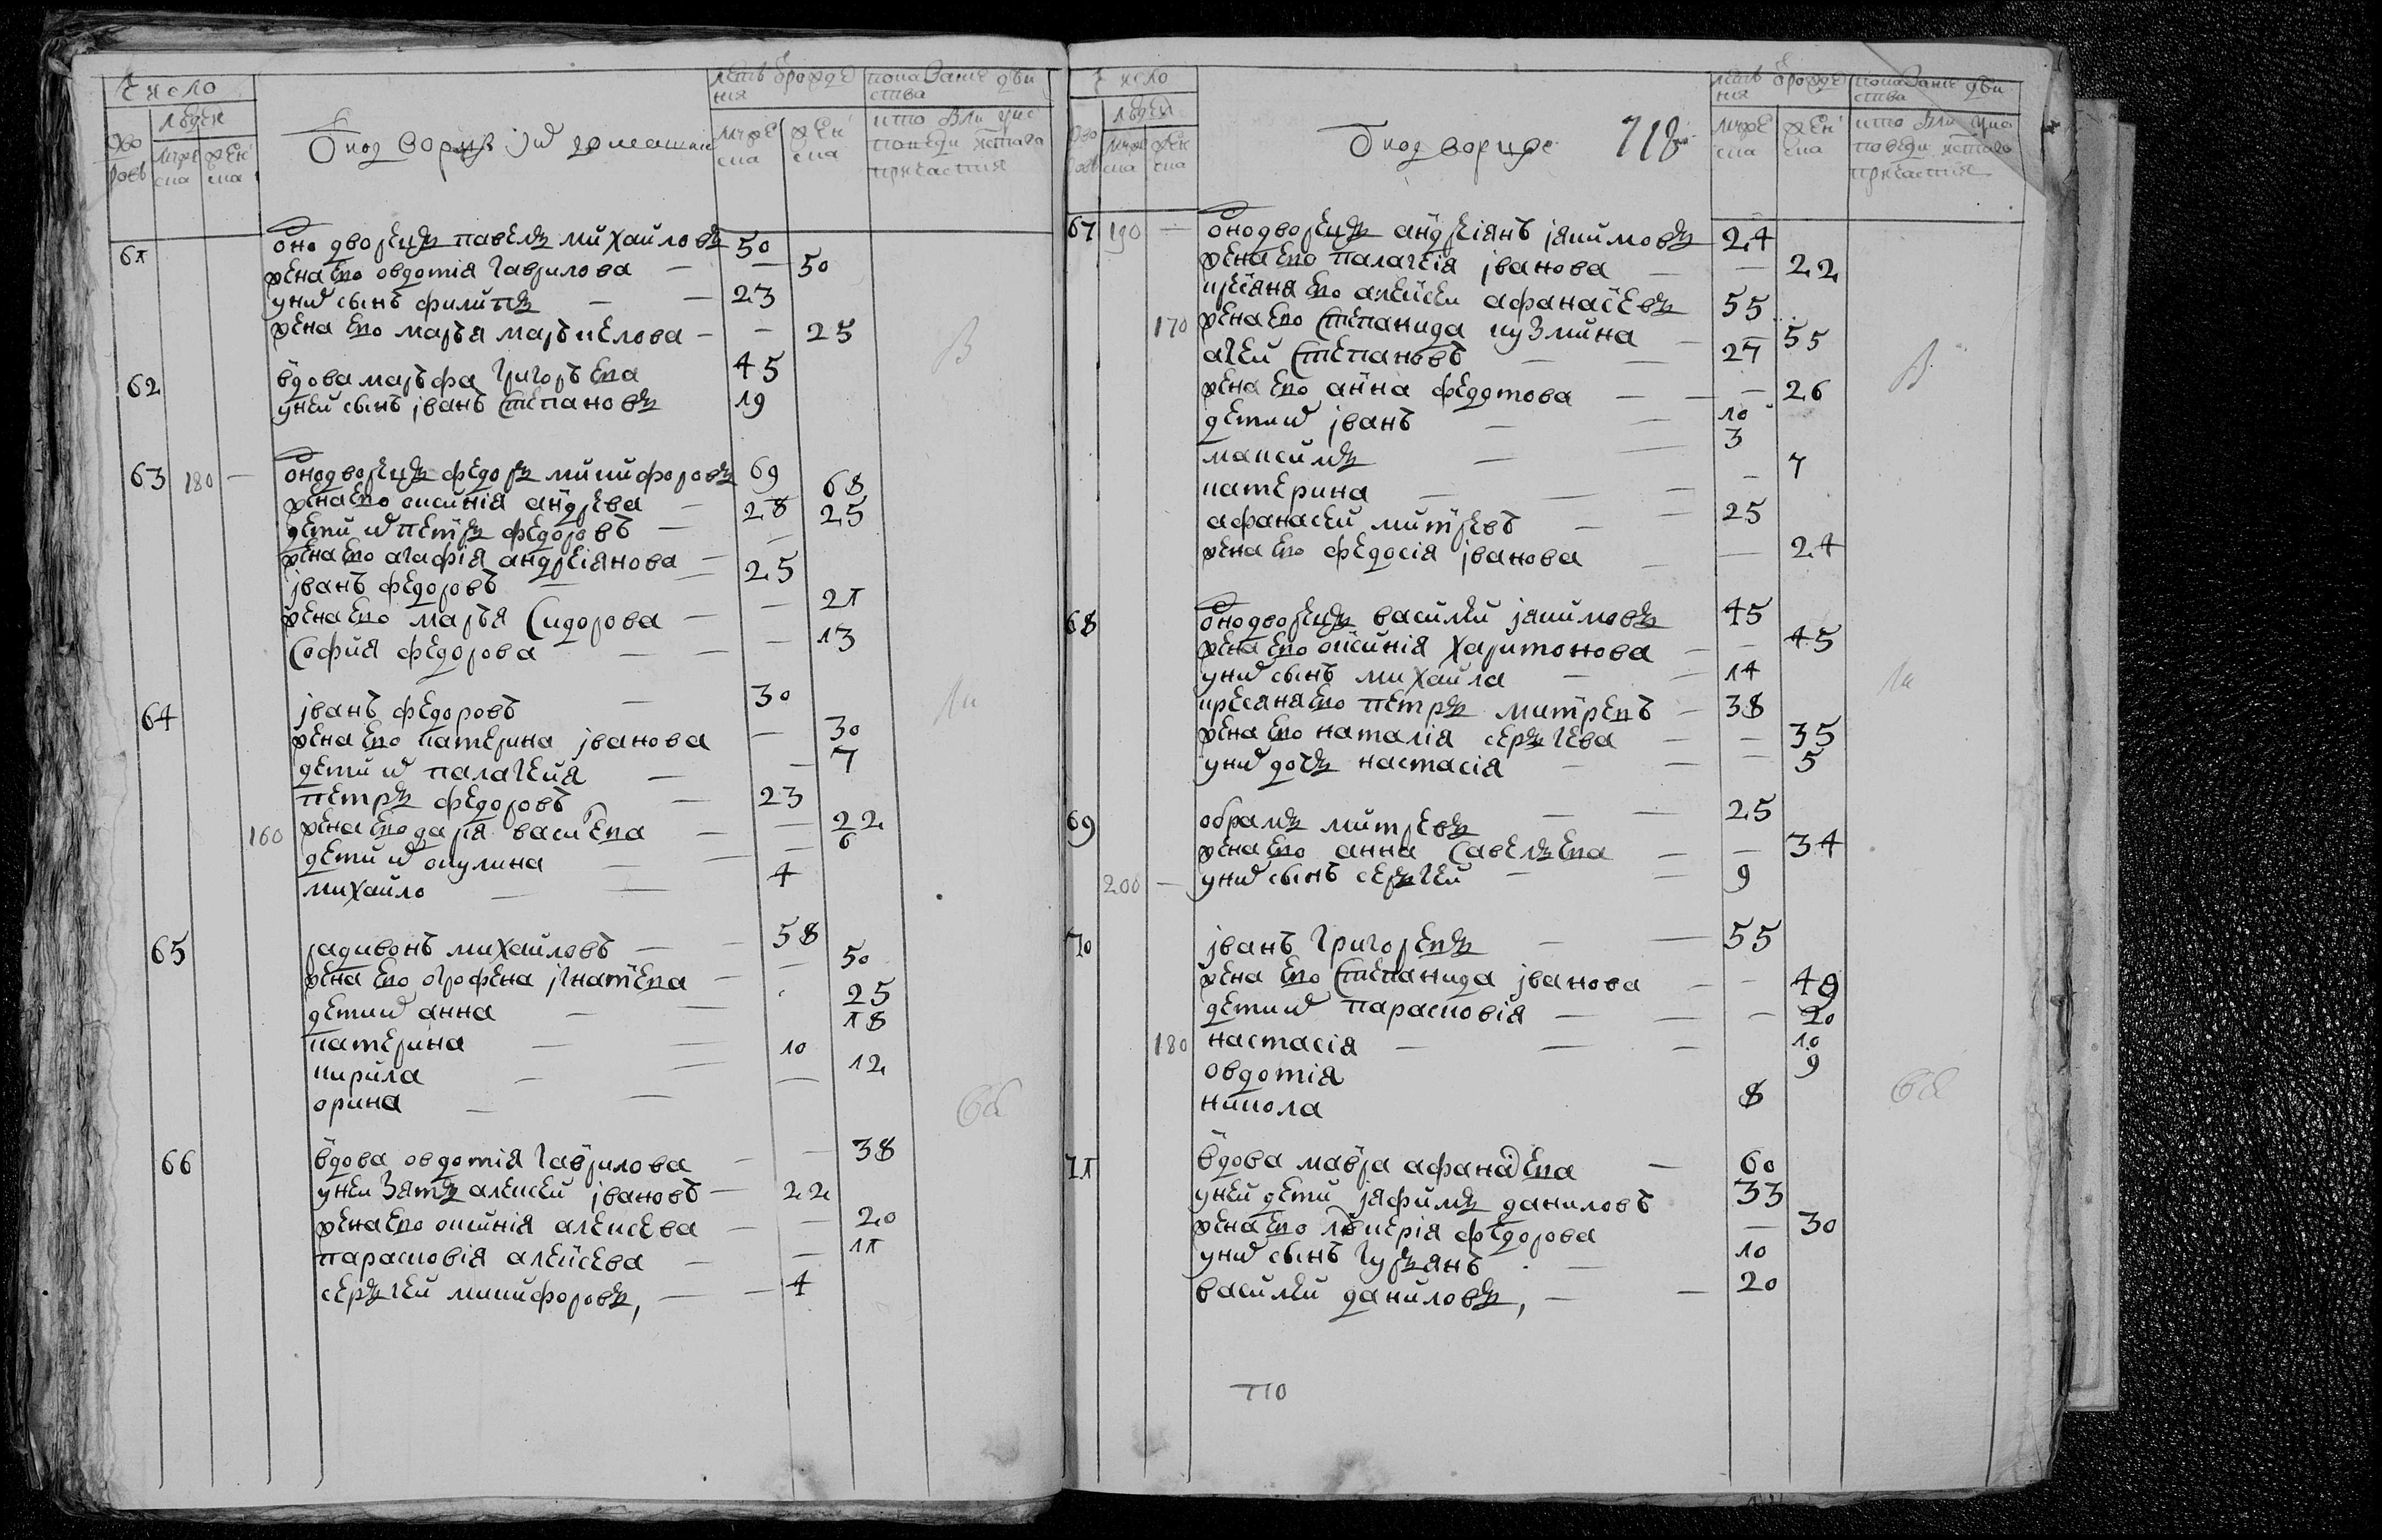 Число
людей
Дво
ровъ
муже
ска
жен
ска
Однодворцы и их домашние
летъ от рожде
ния
муже
ска
жен
ска
показание дѣи
ства
кто былъ у ис
поведи и с̃таго
причастия
61 однодворецъ павелъ михаиловъ 50
жена ево овдотія гаврилова — — 50
у них сынъ филипъ — — 23
жена ево марья маркелова — — 25
62 вдова марфа григорьева 45
у неи сынъ іванъ степановъ 19
63 180 — однодворецъ федоръ микифоровъ 69
жена ево оксинія андреева — 68
дети их петръ федоровъ — 28 25
жена ево агафія андреіянова — —
іванъ федоровъ — — 25
жена ево марья сидорова — — 21
софия федорова — — — 13
64 іванъ федоровъ — 30
жена ево катерина іванова — 30
дети их палагея — — 7
петръ федоровъ — 23
160 жена ево дарья васильева — — 22
дети их окулина — — — 6
михаило — — 4
65 радивонъ михаиловъ — — 58
жена ево огрофена ігнатева — — 50
дети их анна — — 25
катерина — — 18
кирила — — 10
орина — — — 12
66 вдова овдотія гаврилова — — 38
у неи зять алексеи івановъ — 22
жена ево оксинія алексева — — 20
парасковія алексева — — 11
сергеи микифоровъ, — — 4
Число
людей
дво
ровъ
муже
ска
жен
ска
Однодворцы
718
летъ от рожде
ния
муже
ска
жен
ска
показание дѣи
ства
кто былъ у ис
поведи и с̃таго
причастия
67 190 — однодворецъ андреіянъ якимовъ 24
жена ево палагея іванова — — 22
крестьяня ево алексеи афанасевъ 55
170 жена ево степанида кузмина — — 55
агеи степановъ — — 27
жена ево анна федотова — — — 26
дети их іванъ — — 10
максимъ — — 3
катерина — — — — 7
афанасеи митревъ — — 25
жена ево федосія іванова — — 24
68 однодворецъ василеи якимовъ 45
жена ево оксинія харитонова — — 45
у них сынъ михаила — — 14
крестьяня ево петръ митревъ — 38
жена ево наталія сергева — — 35
у них дочь настасія — — — 5
69 обрамъ митревъ — — 25
жена ево анна савельева — — 34
200 — у них сынъ сергеи — — 9
70 іванъ григоревъ — — 55
жена ево степанида іванова — — 49
дети их парасковія — — — 20
180 настасія — — — 10
овдотія 9
никола 8
71 вдова мавра афанасева — 60
у неи дети ефимъ даниловъ 33
жена ево лукерія федорова — 30
у них сынъ гурьянъ — 10
василеи даниловъ, — — 20